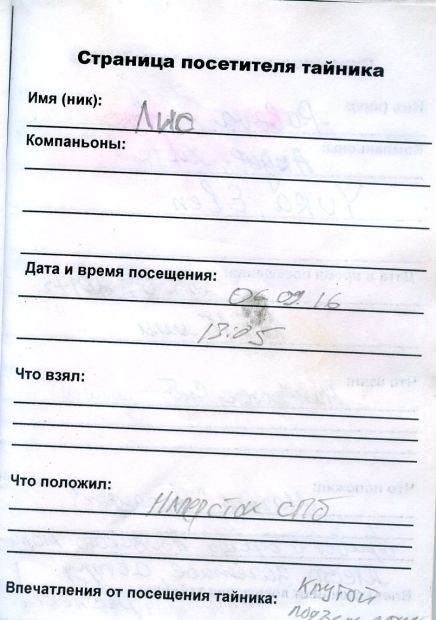 Страница посетителя тайника
Имя (ник): Лио
Компаньоны:
Дата и время посещения:
06.09.16
13:05
Что взял:
Что положил:
Напёрсток СПб
Впечатления от посещения тайника: Крутой